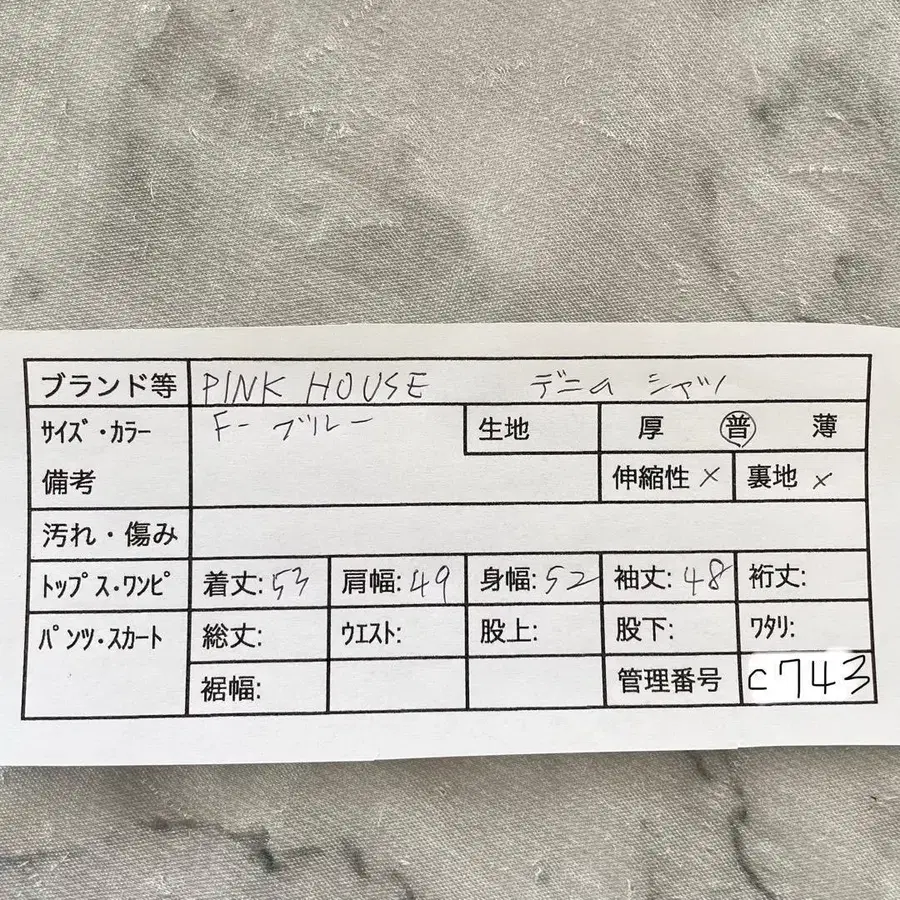 ブランド等 PINK HOUSE デニム シャツ
サイズ・カラー F- ブルー 生地 厚 普 薄
備考 伸縮性 × 裏地 ×
汚れ・傷み
トップス・ワンピ 着丈: 53 肩幅: 49 身幅: 52 袖丈: 48 裄丈:
パンツ・スカート 総丈: ウエスト: 股上: 股下: ワタリ:
裾幅: 管理番号 C743